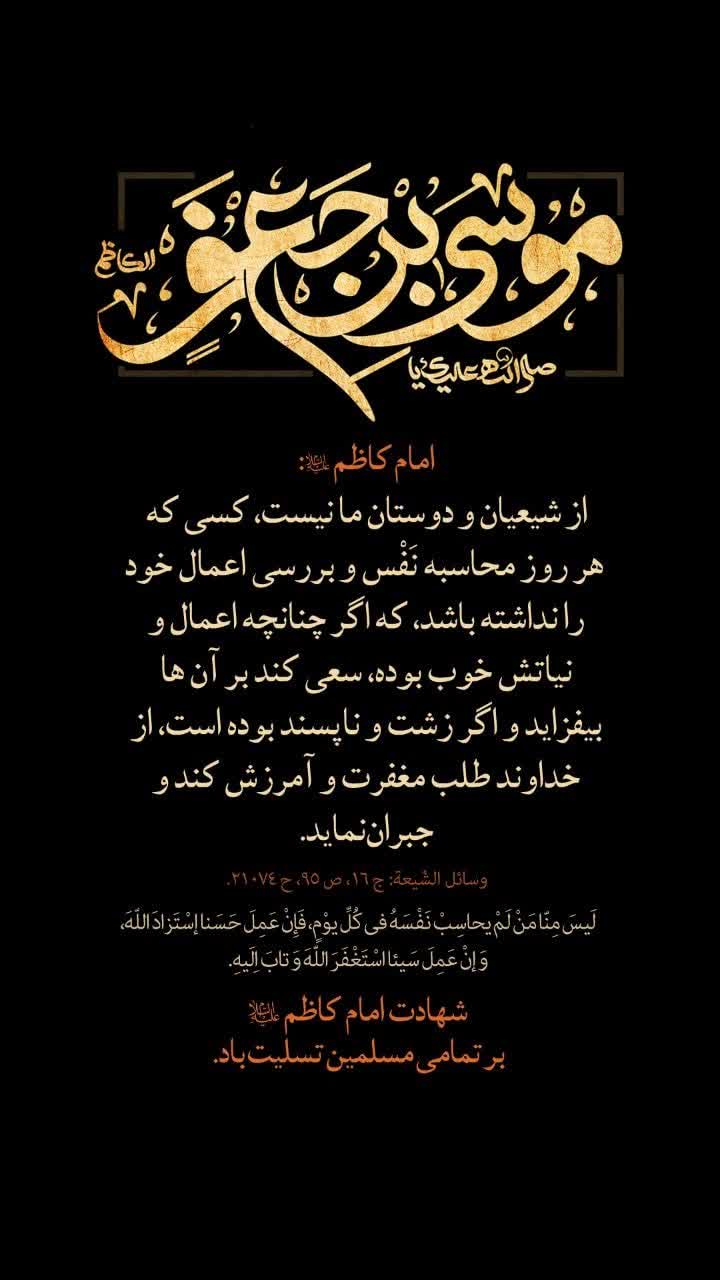 موسی بن جعفر
الکاظم
صلوات الله علیک یا
امام کاظم علیه‌السلام:
از شیعیان و دوستان ما نیست، کسی که
هر روز محاسبه نَفْس و بررسی اعمال خود
را نداشته باشد، که اگر چنانچه اعمال و
نیاتش خوب بوده، سعی کند بر آن ها
بیفزاید و اگر زشت و ناپسند بوده است، از
خداوند طلب مغفرت و آمرزش کند و
جبران‌نماید.
وسائل الشّیعة: ج ١٦، ص ٩٥، ح ٢١٠٧٤.
لَیسَ مِنّا مَنْ لَمْ یحاسِبْ نَفْسَهُ فی کُلِّ یوْمٍ، فَإِنْ عَمِلَ حَسَنا إسْتَزادَ اللّهَ،
وَ إنْ عَمِلَ سَیئا اسْتَغْفَرَ اللّهَ وَ تابَ اِلَیهِ.
شهادت امام کاظم علیه‌السلام
بر تمامی مسلمین تسلیت‌باد.